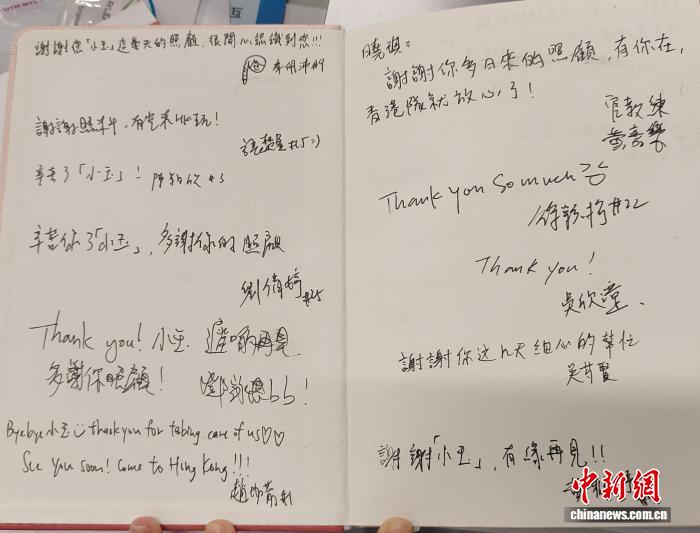 謝謝您「小玉」這幾天的照顧，很開心認識到您!!!
謝謝照料，有空來HK玩！
#15 :)
辛苦了「小玉」！ 陳 #3
辛苦你了「小玉」，多謝你的照顧
劉倩 #25
Thank you! 小玉. 遲啲再見
多謝你照顧！ bb！
Byebye 小玉 thank you for taking care of us♡♡
See you soon! Come to Hong Kong!!!
趙
曉琪：
謝謝你多日來的照顧，有你在，
香港隊就放心了！
官教練
Thank you so much
徐 #22
Thank you!
吳欣
謝謝你这几天细心的幫忙
吳
謝謝「小玉」，有緣再見!!
中新網
chinanews.com.cn